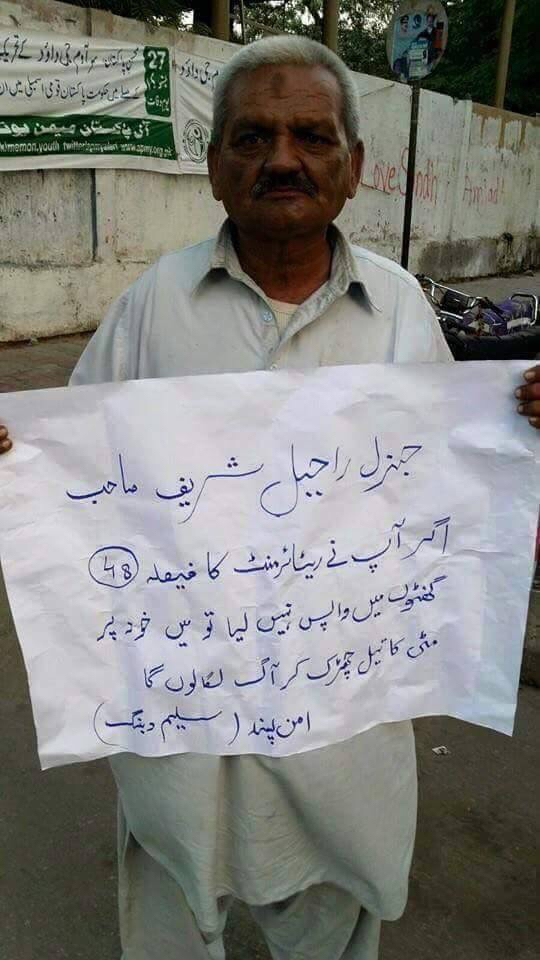 جنرل راحیل شریف صاحب
اگر آپ نے ریٹائرمنٹ کا فیصلہ 48
گھنٹوں میں واپس نہیں لیا تو میں خود پر
مٹی کا تیل چھڑک کر آگ لگالوں گا
امن پسند (سلیم دبنگ)
27
آل پاکستان میمن یوتھ
k/memon.youth
www.apmy.org.pk
Love Sindh
Amjad